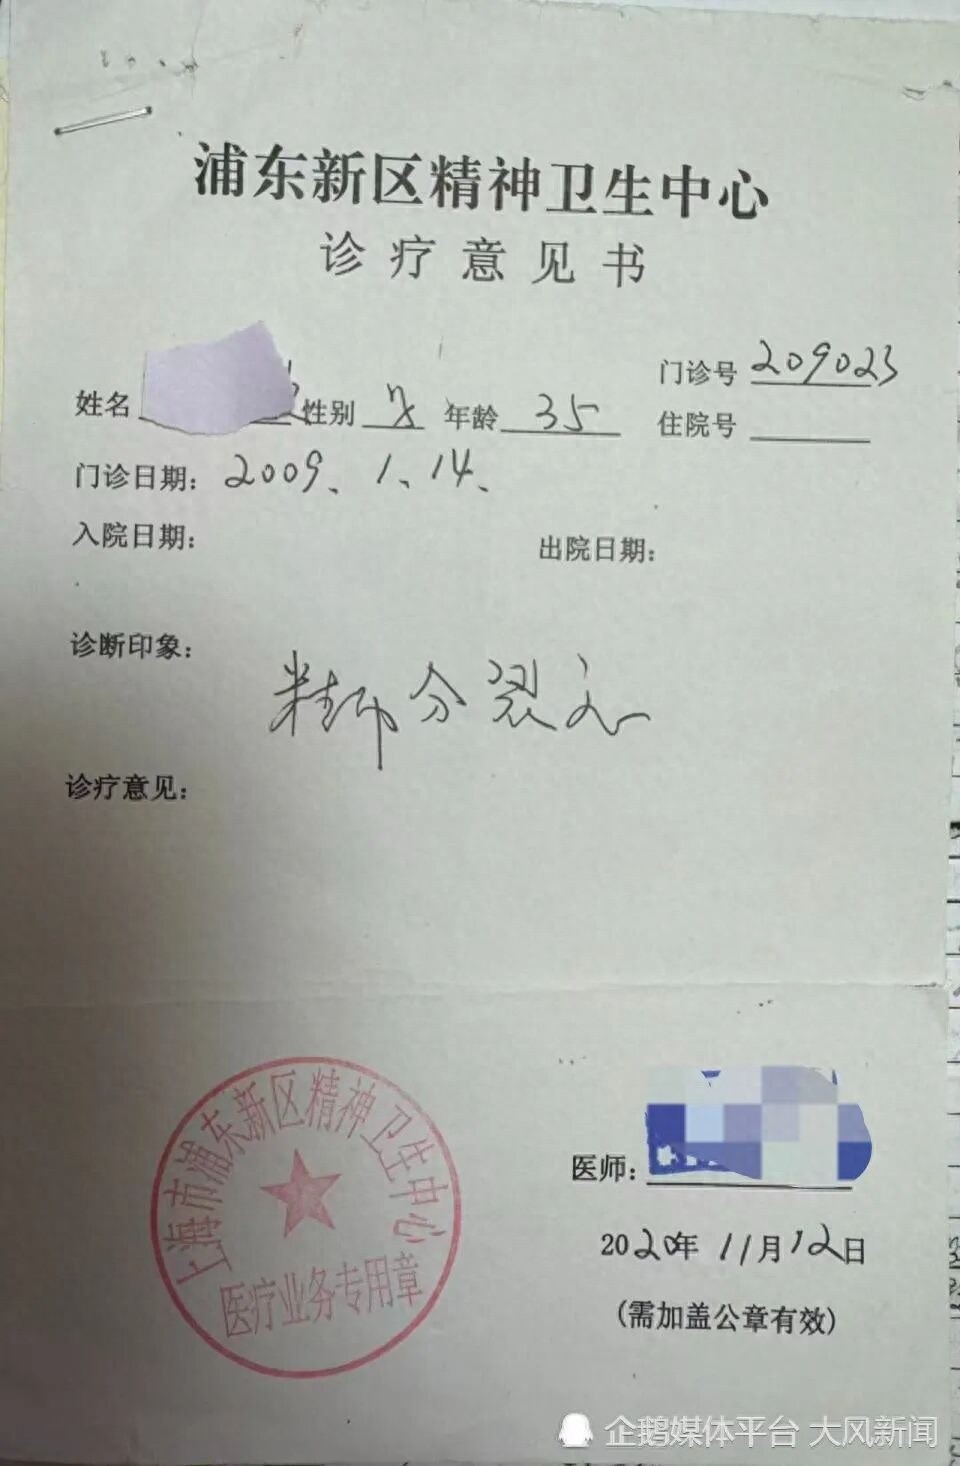 浦东新区精神卫生中心
诊疗意见书
门诊号 209023
姓名 性别 女 年龄 35 住院号
门诊日期：2009、1、14、
入院日期： 出院日期：
诊断印象：
精神分裂症
诊疗意见：
上海市浦东新区精神卫生中心
医疗业务专用章
医师：
2020年11月12日
(需加盖公章有效)
企鹅媒体平台 大风新闻